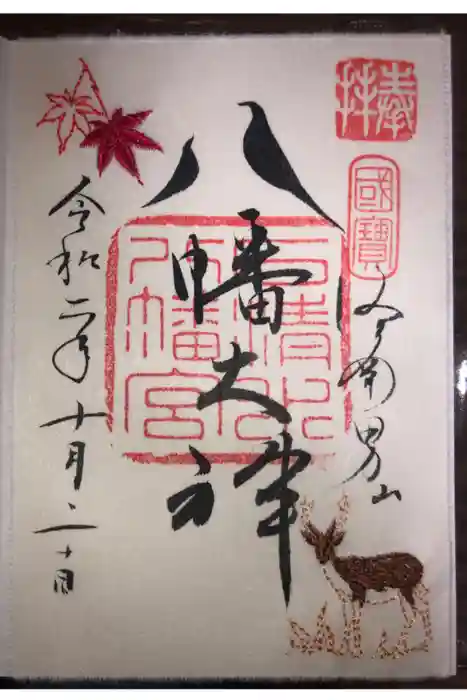 奉拝
國寶
京南男山
八幡大神
石清水
八幡宮
令和二年十月二十日